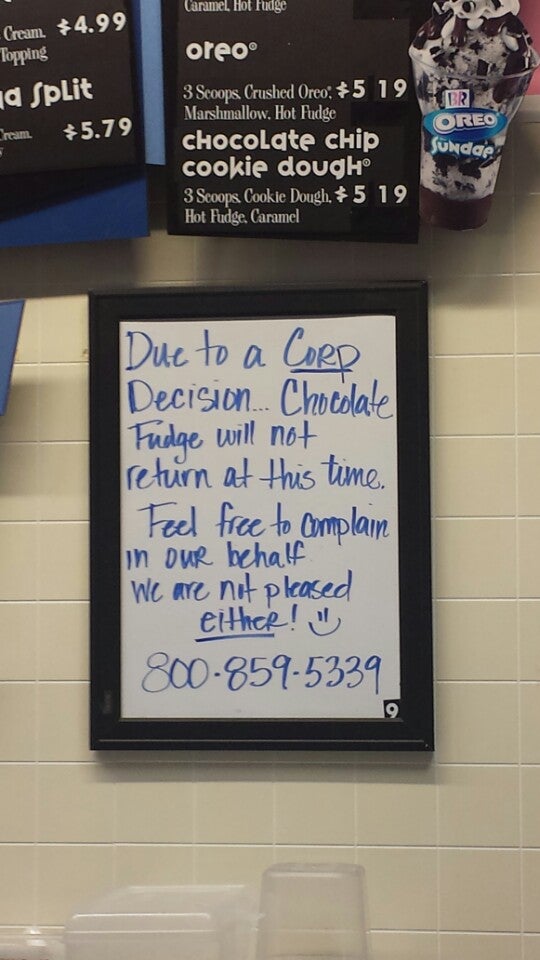 Cream. $4.99
Topping
a Split
Cream. $5.79
Caramel, Hot Fudge
oreo®
3 Scoops, Crushed Oreo®, $5 19
Marshmallow, Hot Fudge
chocolate chip
cookie dough®
3 Scoops, Cookie Dough, $5 19
Hot Fudge, Caramel
BR
OREO
Sundae
Due to a Corp
Decision... Chocolate
Fudge will not
return at this time.
Feel free to complain
in our behalf
We are not pleased
either!
800-859-5339
9